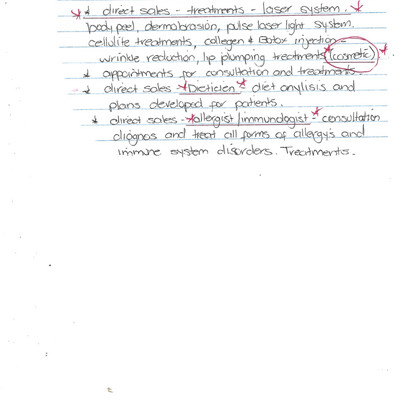 * direct sales - treatments - laser system.
body peel, dermabrasion, pulse laser light system.
cellulite treatments, collegen & Botox injection -
wrinkle reduction, lip plumping treatments (cosmetic)
* appointments for consultation and treatments.
* direct sales - Dieticien - diet anylisis and
plans developed for patients.
* direct sales - allergist/immunologist - consultation
diagnos and treat all forms of allergy's and
immune system disorders. Treatments.